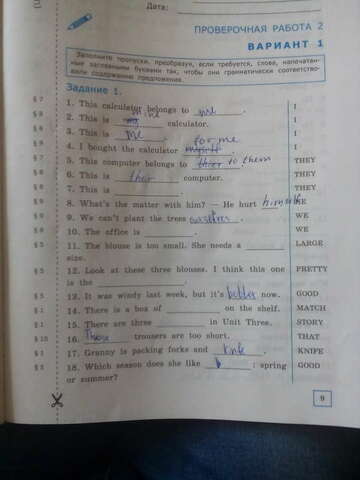 Дата:
ПРОВЕРОЧНАЯ РАБОТА 2
ВАРИАНТ 1
Заполните пропуски, преобразуя, если требуется, слова, напечатан-
ные заглавными буквами так, чтобы они грамматически соответство-
вали содержанию предложения.
Задание 1.
§ 7 1. This calculator belongs to me. I
§ 5 2. This is mine calculator. I
§ 7 3. This is me. I
§ 7 4. I bought the calculator for me myself. I
§ 5 5. This computer belongs to their to them. THEY
§ 6 6. This is their computer. THEY
§ 7 7. This is . THEY
§ 7 8. What's the matter with him? — He hurt himself HE
§ 9 9. We can't plant the trees ourselves. WE
§ 6 10. The office is . WE
§ 5 11. The blouse is too small. She needs a LARGE
size.
§ 5 12. Look at these three blouses. I think this one PRETTY
is the .
§ 5 13. It was windy last week, but it's better now. GOOD
§ 1 14. There is a box of on the shelf. MATCH
§ 1 15. There are three in Unit Three. STORY
§ 10 16. Those trousers are too short. THAT
§ 1 17. Granny is packing forks and knife. KNIFE
§ 5 18. Which season does she like : spring GOOD
or summer?
9